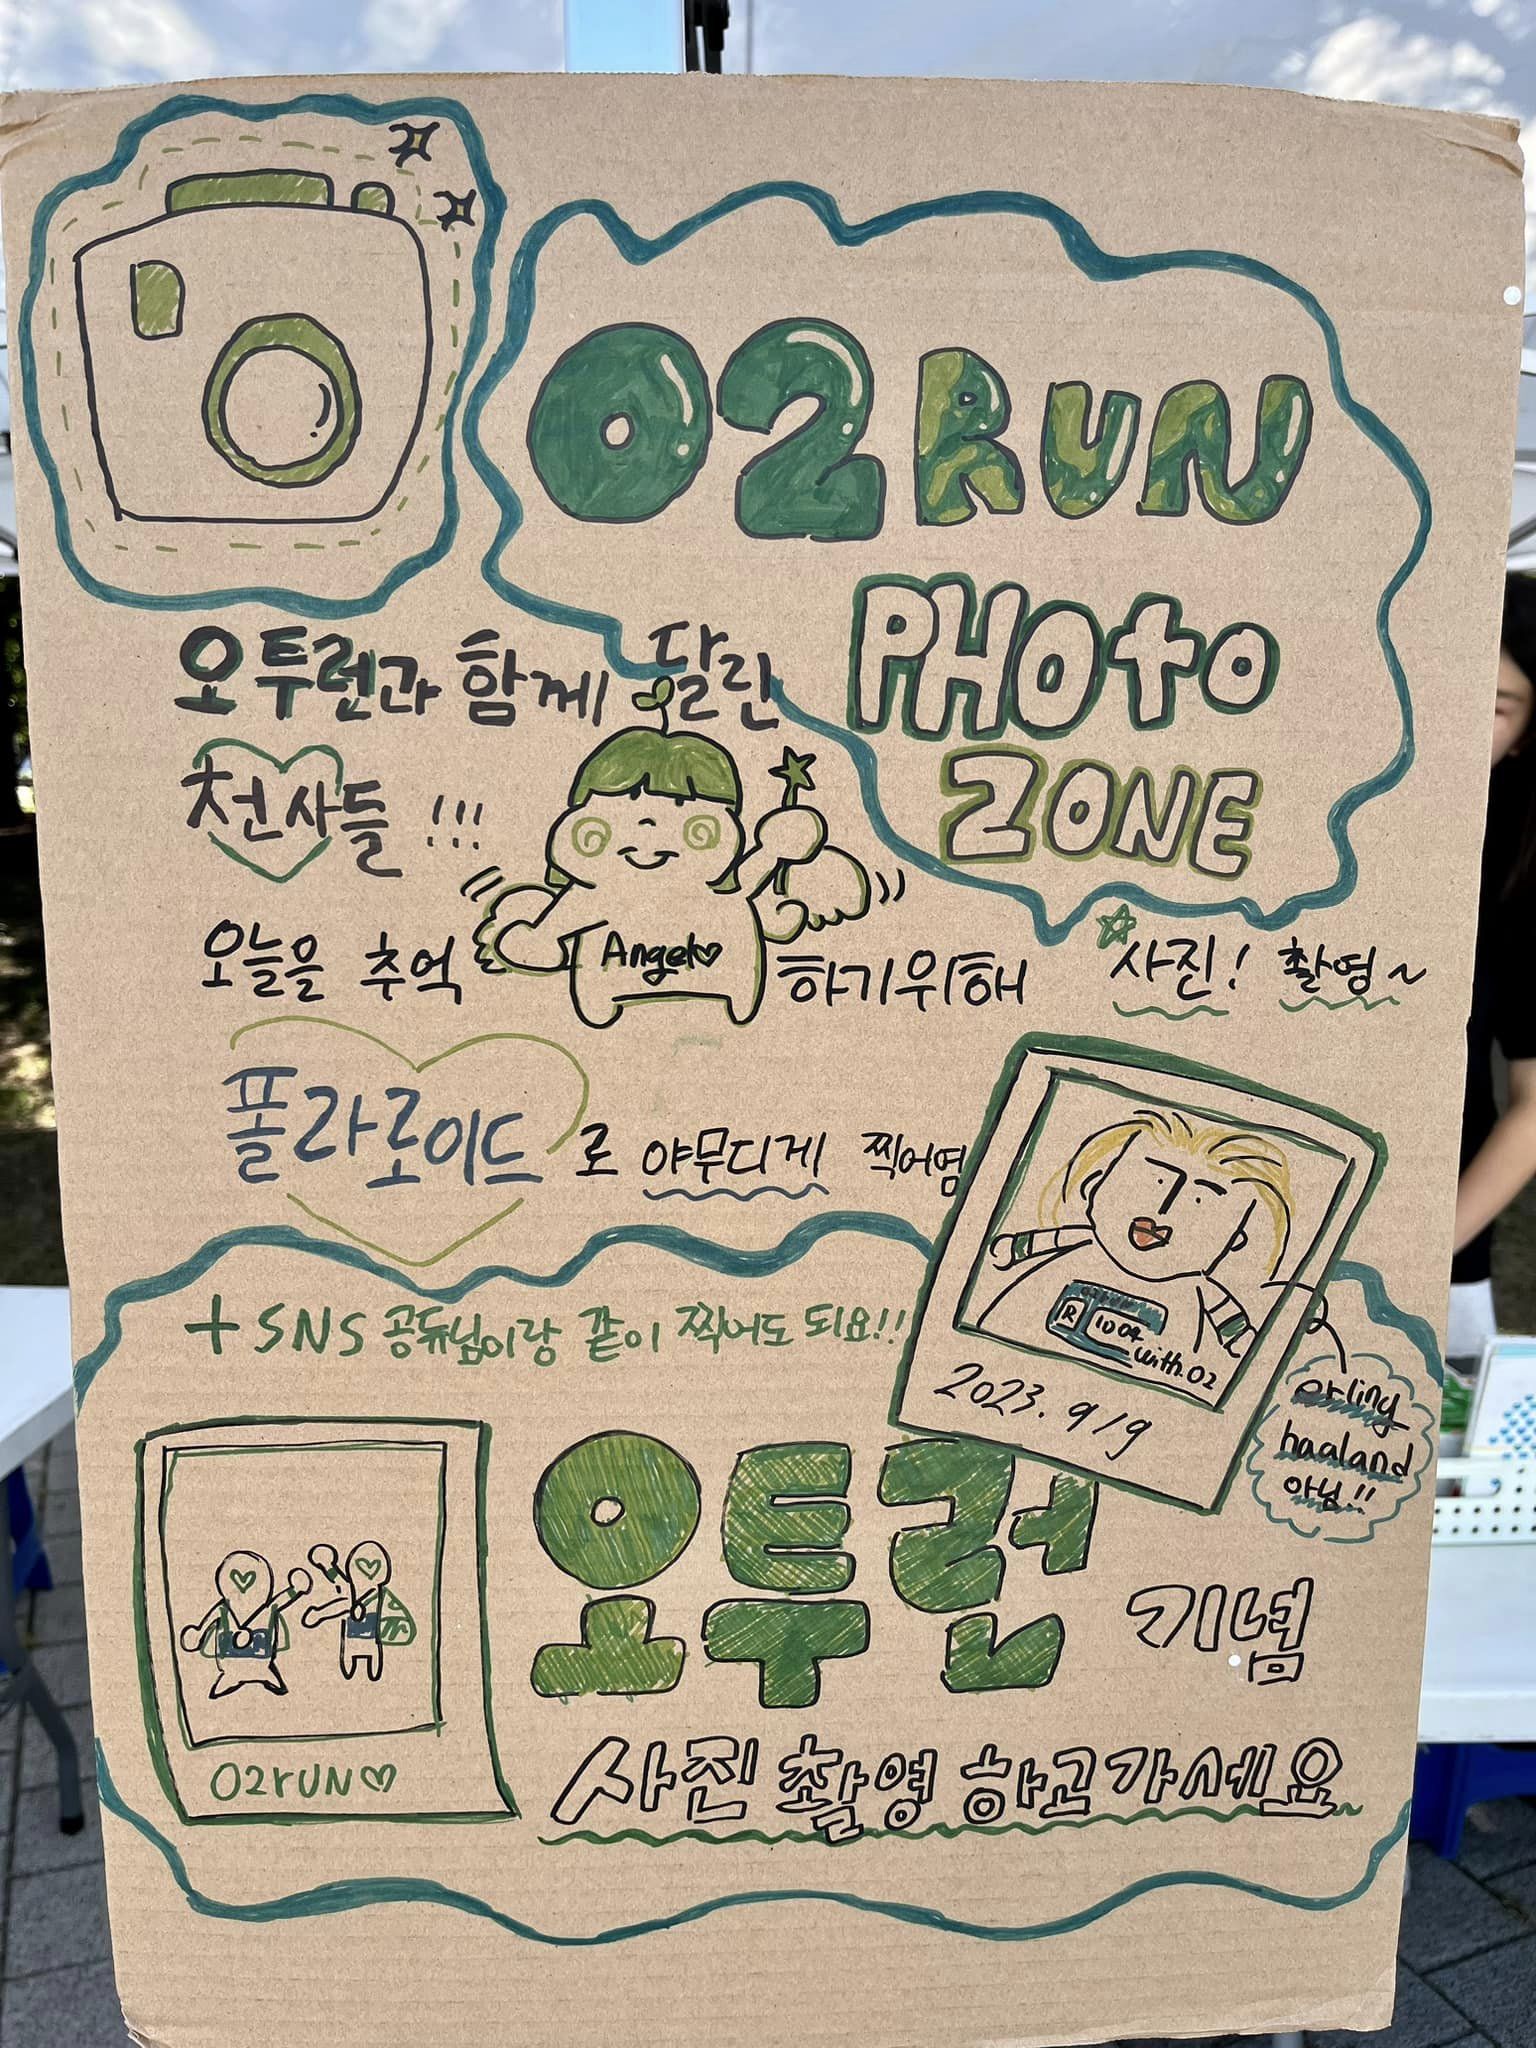 O2 RUN
PHOTO
ZONE
오투런과 함께 달린
천사들 !!!
Angel♡
오늘을 추억 하기위해 사진! 촬영~
폴라로이드로 야무디게 찍어염
+ SNS 공듀님이랑 같이 찍어도 되요!!
R 1004
with.O2
2023. 9/9
erling
haaland
아님!!
O2rUN♡
오투런 기념
사진 촬영 하고가세요